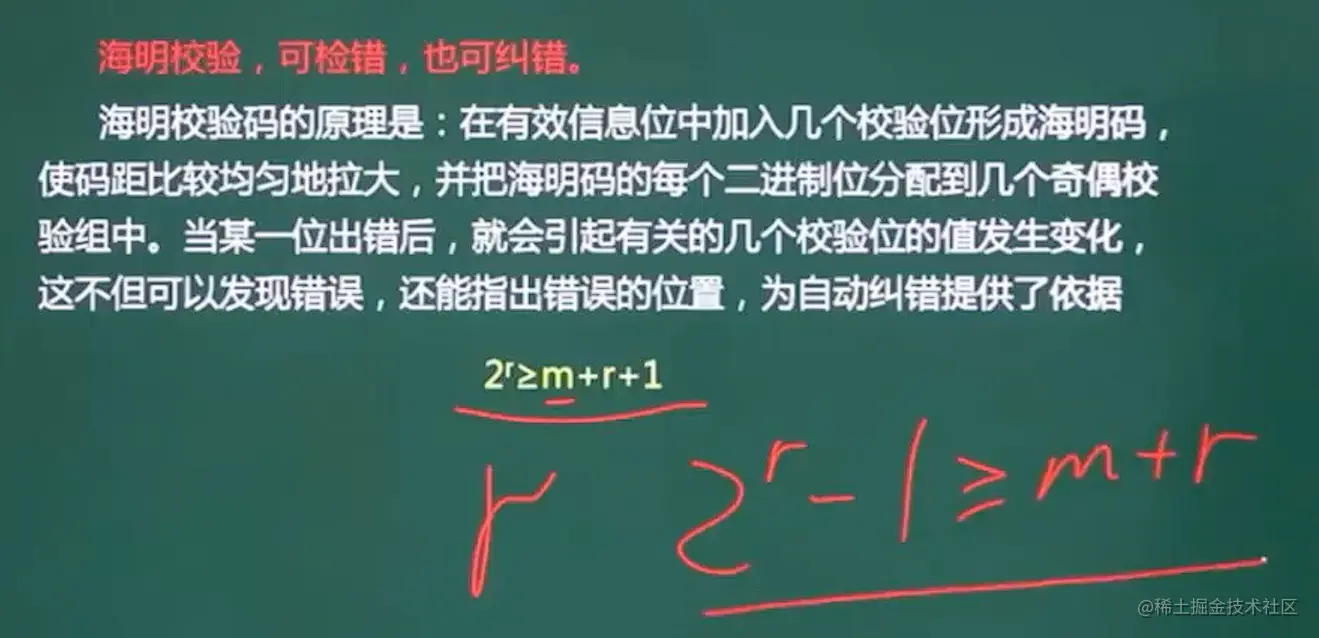 海明校验，可检错，也可纠错。
海明校验码的原理是：在有效信息位中加入几个校验位形成海明码，
使码距比较均匀地拉大，并把海明码的每个二进制位分配到几个奇偶校
验组中。当某一位出错后，就会引起有关的几个校验位的值发生变化，
这不但可以发现错误，还能指出错误的位置，为自动纠错提供了依据
2ʳ≥m+r+1
r 2ʳ-1≥m+r
@稀土掘金技术社区